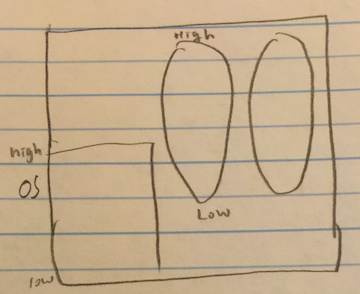 High
High
OS
Low
low